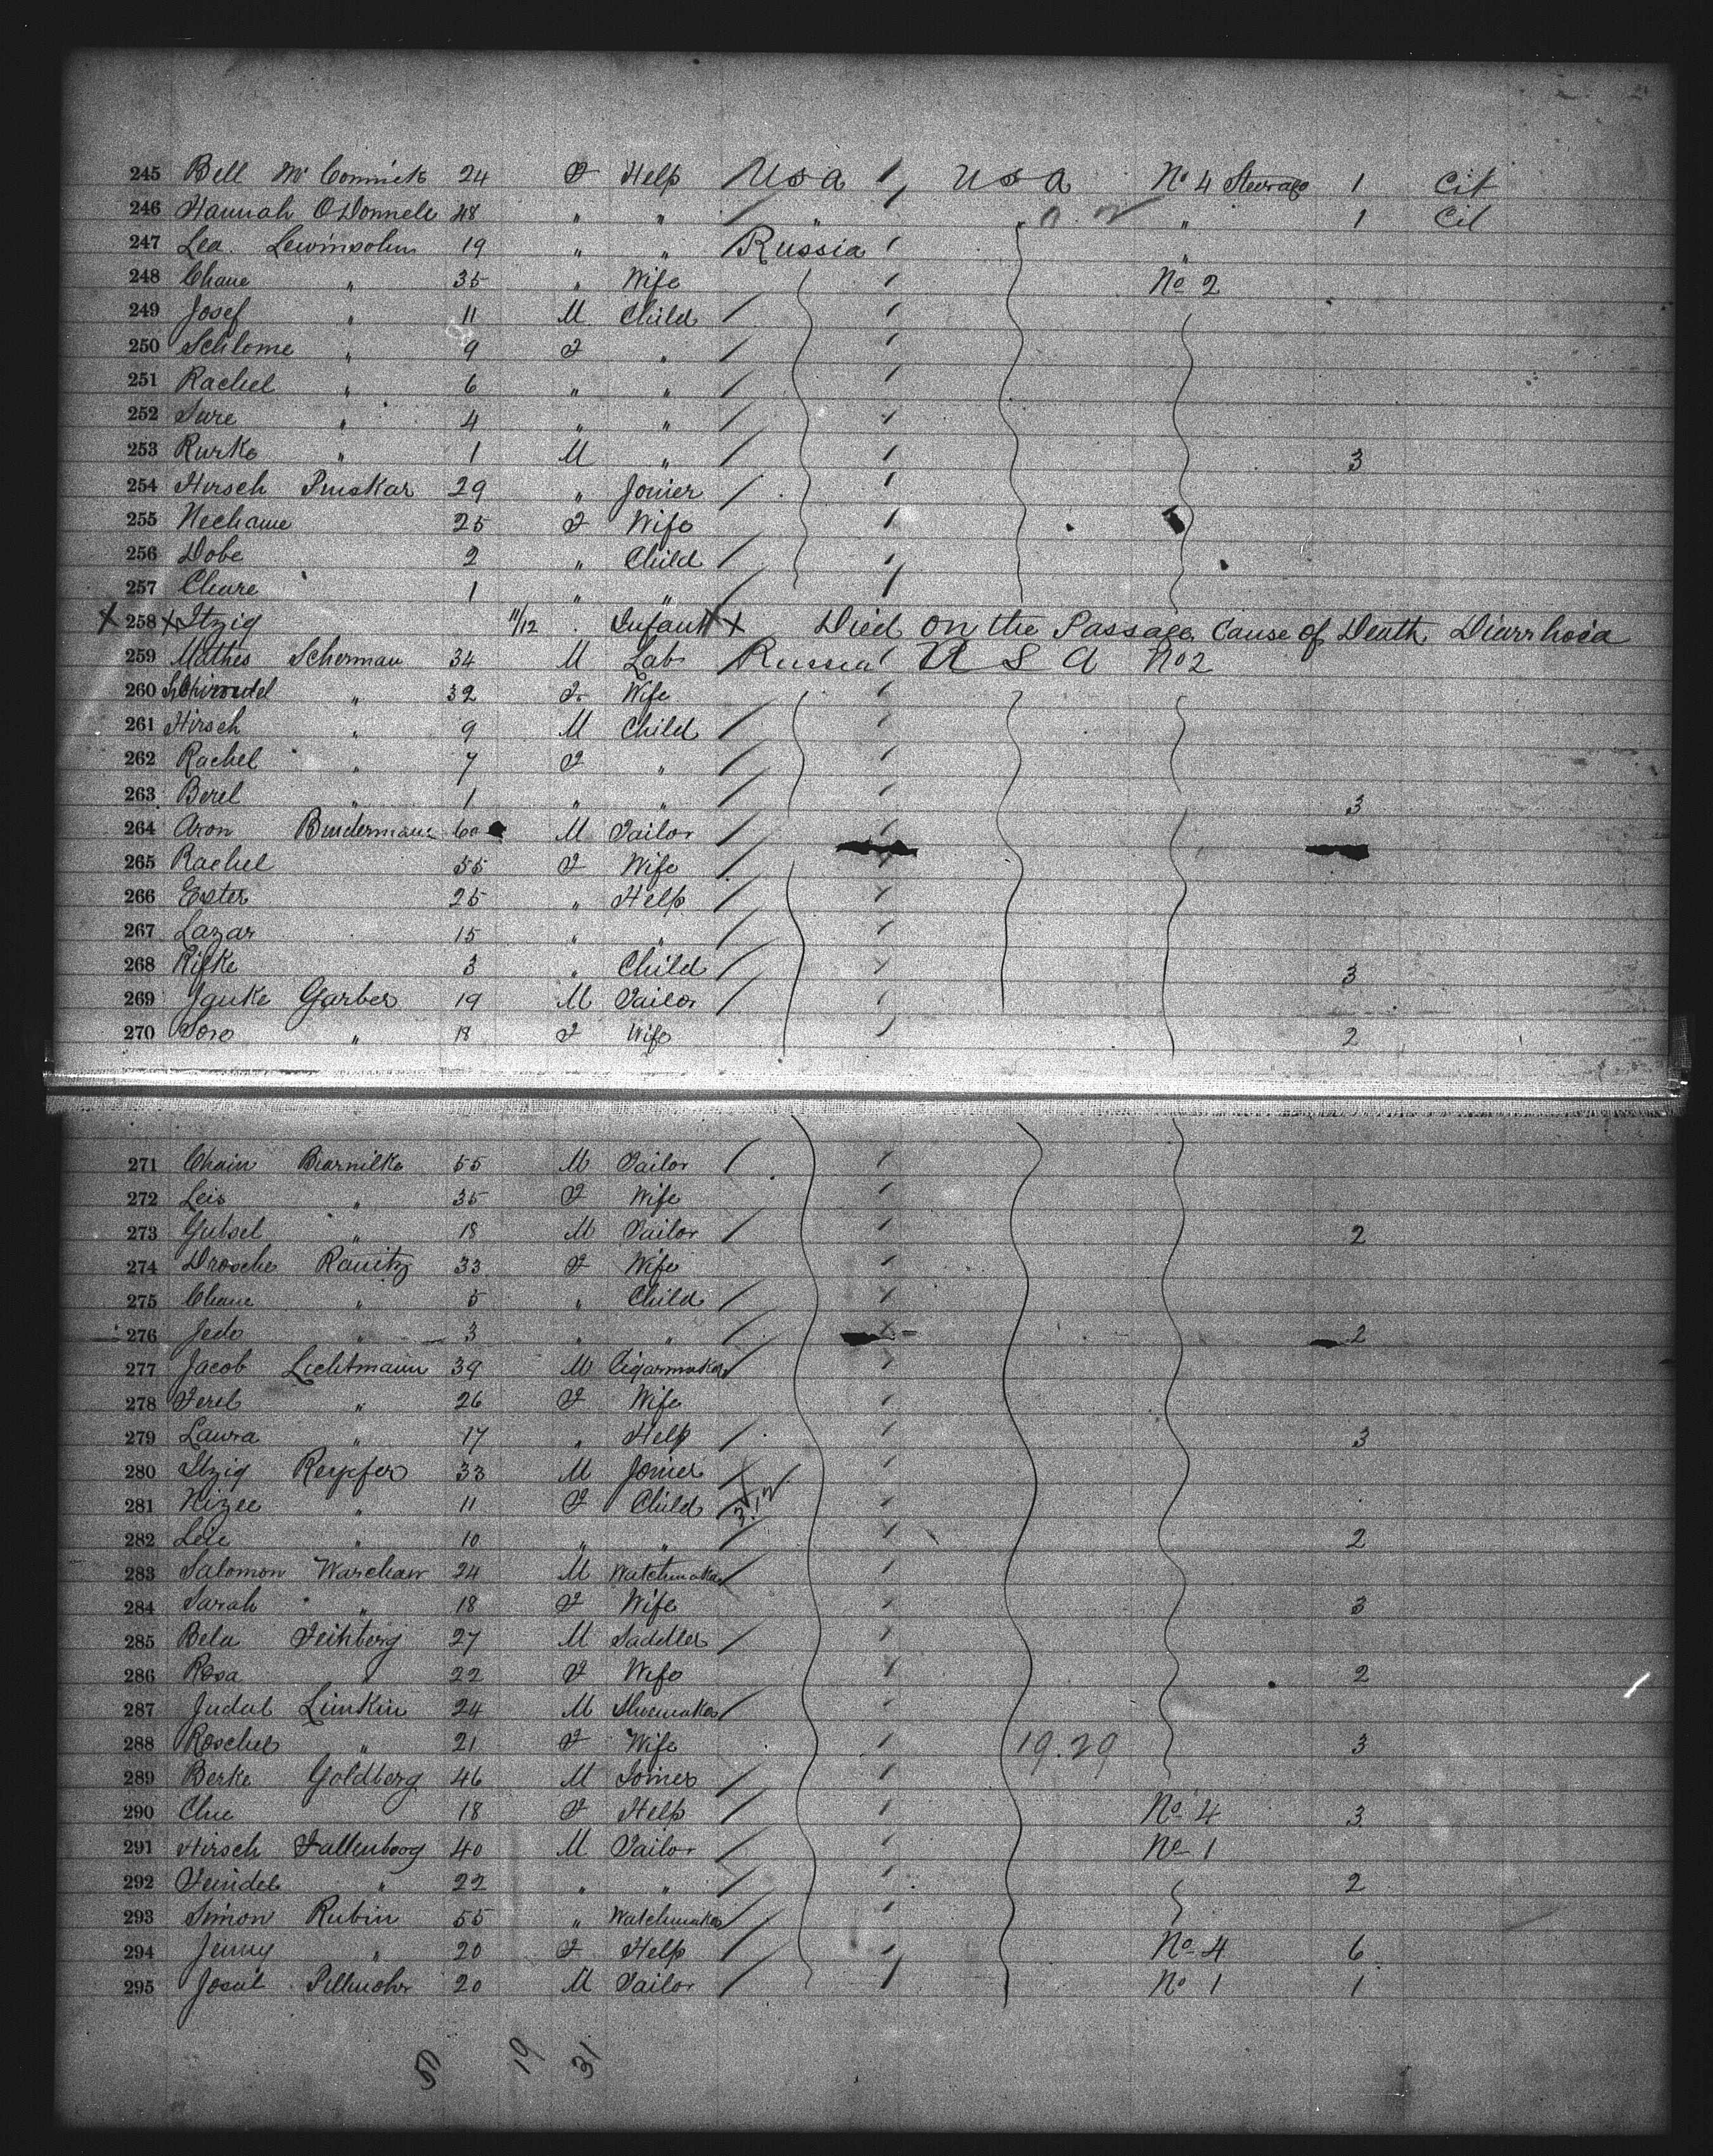 245 Bell McCormick 24 F Help USA USA No 4 Steerage 1 Cit
246 Hannah ODonnell 48 " " " " 1 Cit
247 Lea Lewinsohn 19 " " Russia "
248 Chane " 35 " Wife No 2
249 Josef " 11 M Child
250 Schlome " 9 F "
251 Rachel " 6 " "
252 Sure " 4 " "
253 Rurke " 1 M " 3
254 Hirsch Pinskar 29 " Joiner
255 Nechame 25 F Wife
256 Dobe 2 " Child
257 Chare 1 " "
X 258 X Itzig 11/12 Infant X Died on the Passage Cause of Death Diarrhoea
259 Mathes Scherman 34 M Lab Russia U S A No 2
260 " 32 F Wife
261 Hirsch " 9 M Child
262 Rachel " 7 F "
263 Berel " 1 " " 3
264 Aron Bindermann 60 M Tailor
265 Rachel 55 F Wife
266 Ester 25 " Help
267 Lazar 15 " "
268 Rifke 3 " Child 3
269 Janke Garber 19 M Tailor
270 Sore " 18 F Wife 2
271 Chain 55 M Tailor
272 Leis " 35 F Wife
273 Gutsel " 18 M Tailor 2
274 Drosche Ranitz 33 F Wife
275 Chane " 5 " Child
276 Jedo " 3 " " 2
277 Jacob Lichtmann 39 M Cigarmaker
278 Ferel " 26 F Wife
279 Laura " 17 " Help 3
280 Itzig Reypfer 33 M Joiner
281 Nizee " 11 F Child
282 Leie " 10 " " 2
283 Salomon Warschaw 24 M Watchmaker
284 Sarah " 18 F Wife 3
285 Bela Feinberg 27 M Saddler
286 Rosa " 22 F Wife 2
287 Judal Limkin 24 M Shoemaker
288 Roschel " 21 F Wife 19.29 3
289 Berke Goldberg 46 M Joiner
290 Chie 18 F Help No 4 3
291 Hirsch Fallenboog 40 M Tailor No 1
292 Feindel " 22 " " 2
293 Simon Rubin 55 " Watchmaker
294 Jenny " 20 F Help No 4 6
295 Josul Pillmohr 20 M Tailor No 1 1
50 19 31